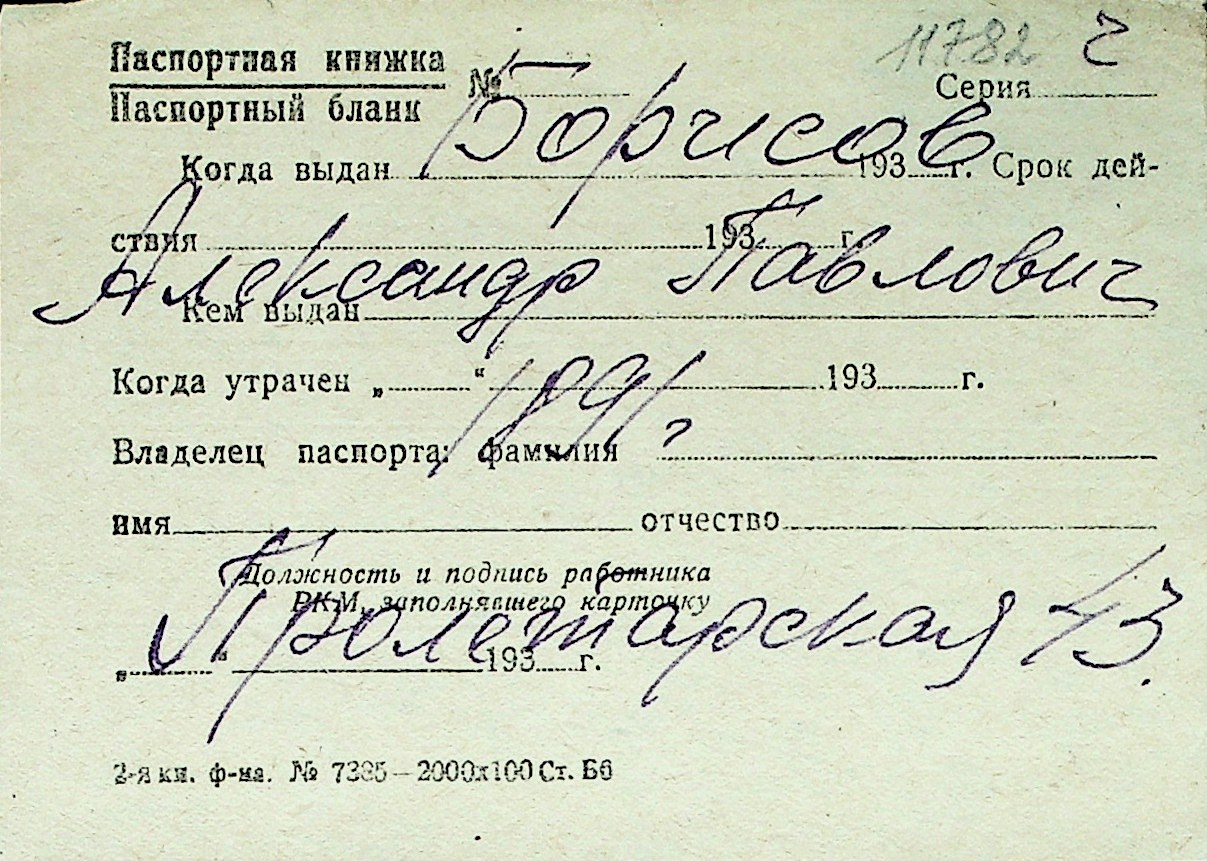 11782 г
Паспортная книжка
Паспортный бланк
№ Серия
Борисов
Когда выдан 193 г. Срок дей-
ствия 193 г.
Александр Павлович
Кем выдан
Когда утрачен „ “ 193 г.
1891 г
Владелец паспорта: фамилия
имя отчество
Должность и подпись работника
РКМ, заполнявшего карточку
Пролетарская 43.
„ “ 193 г.
2-я кн. ф-ка. № 7385—2000х100 Ст. Б6